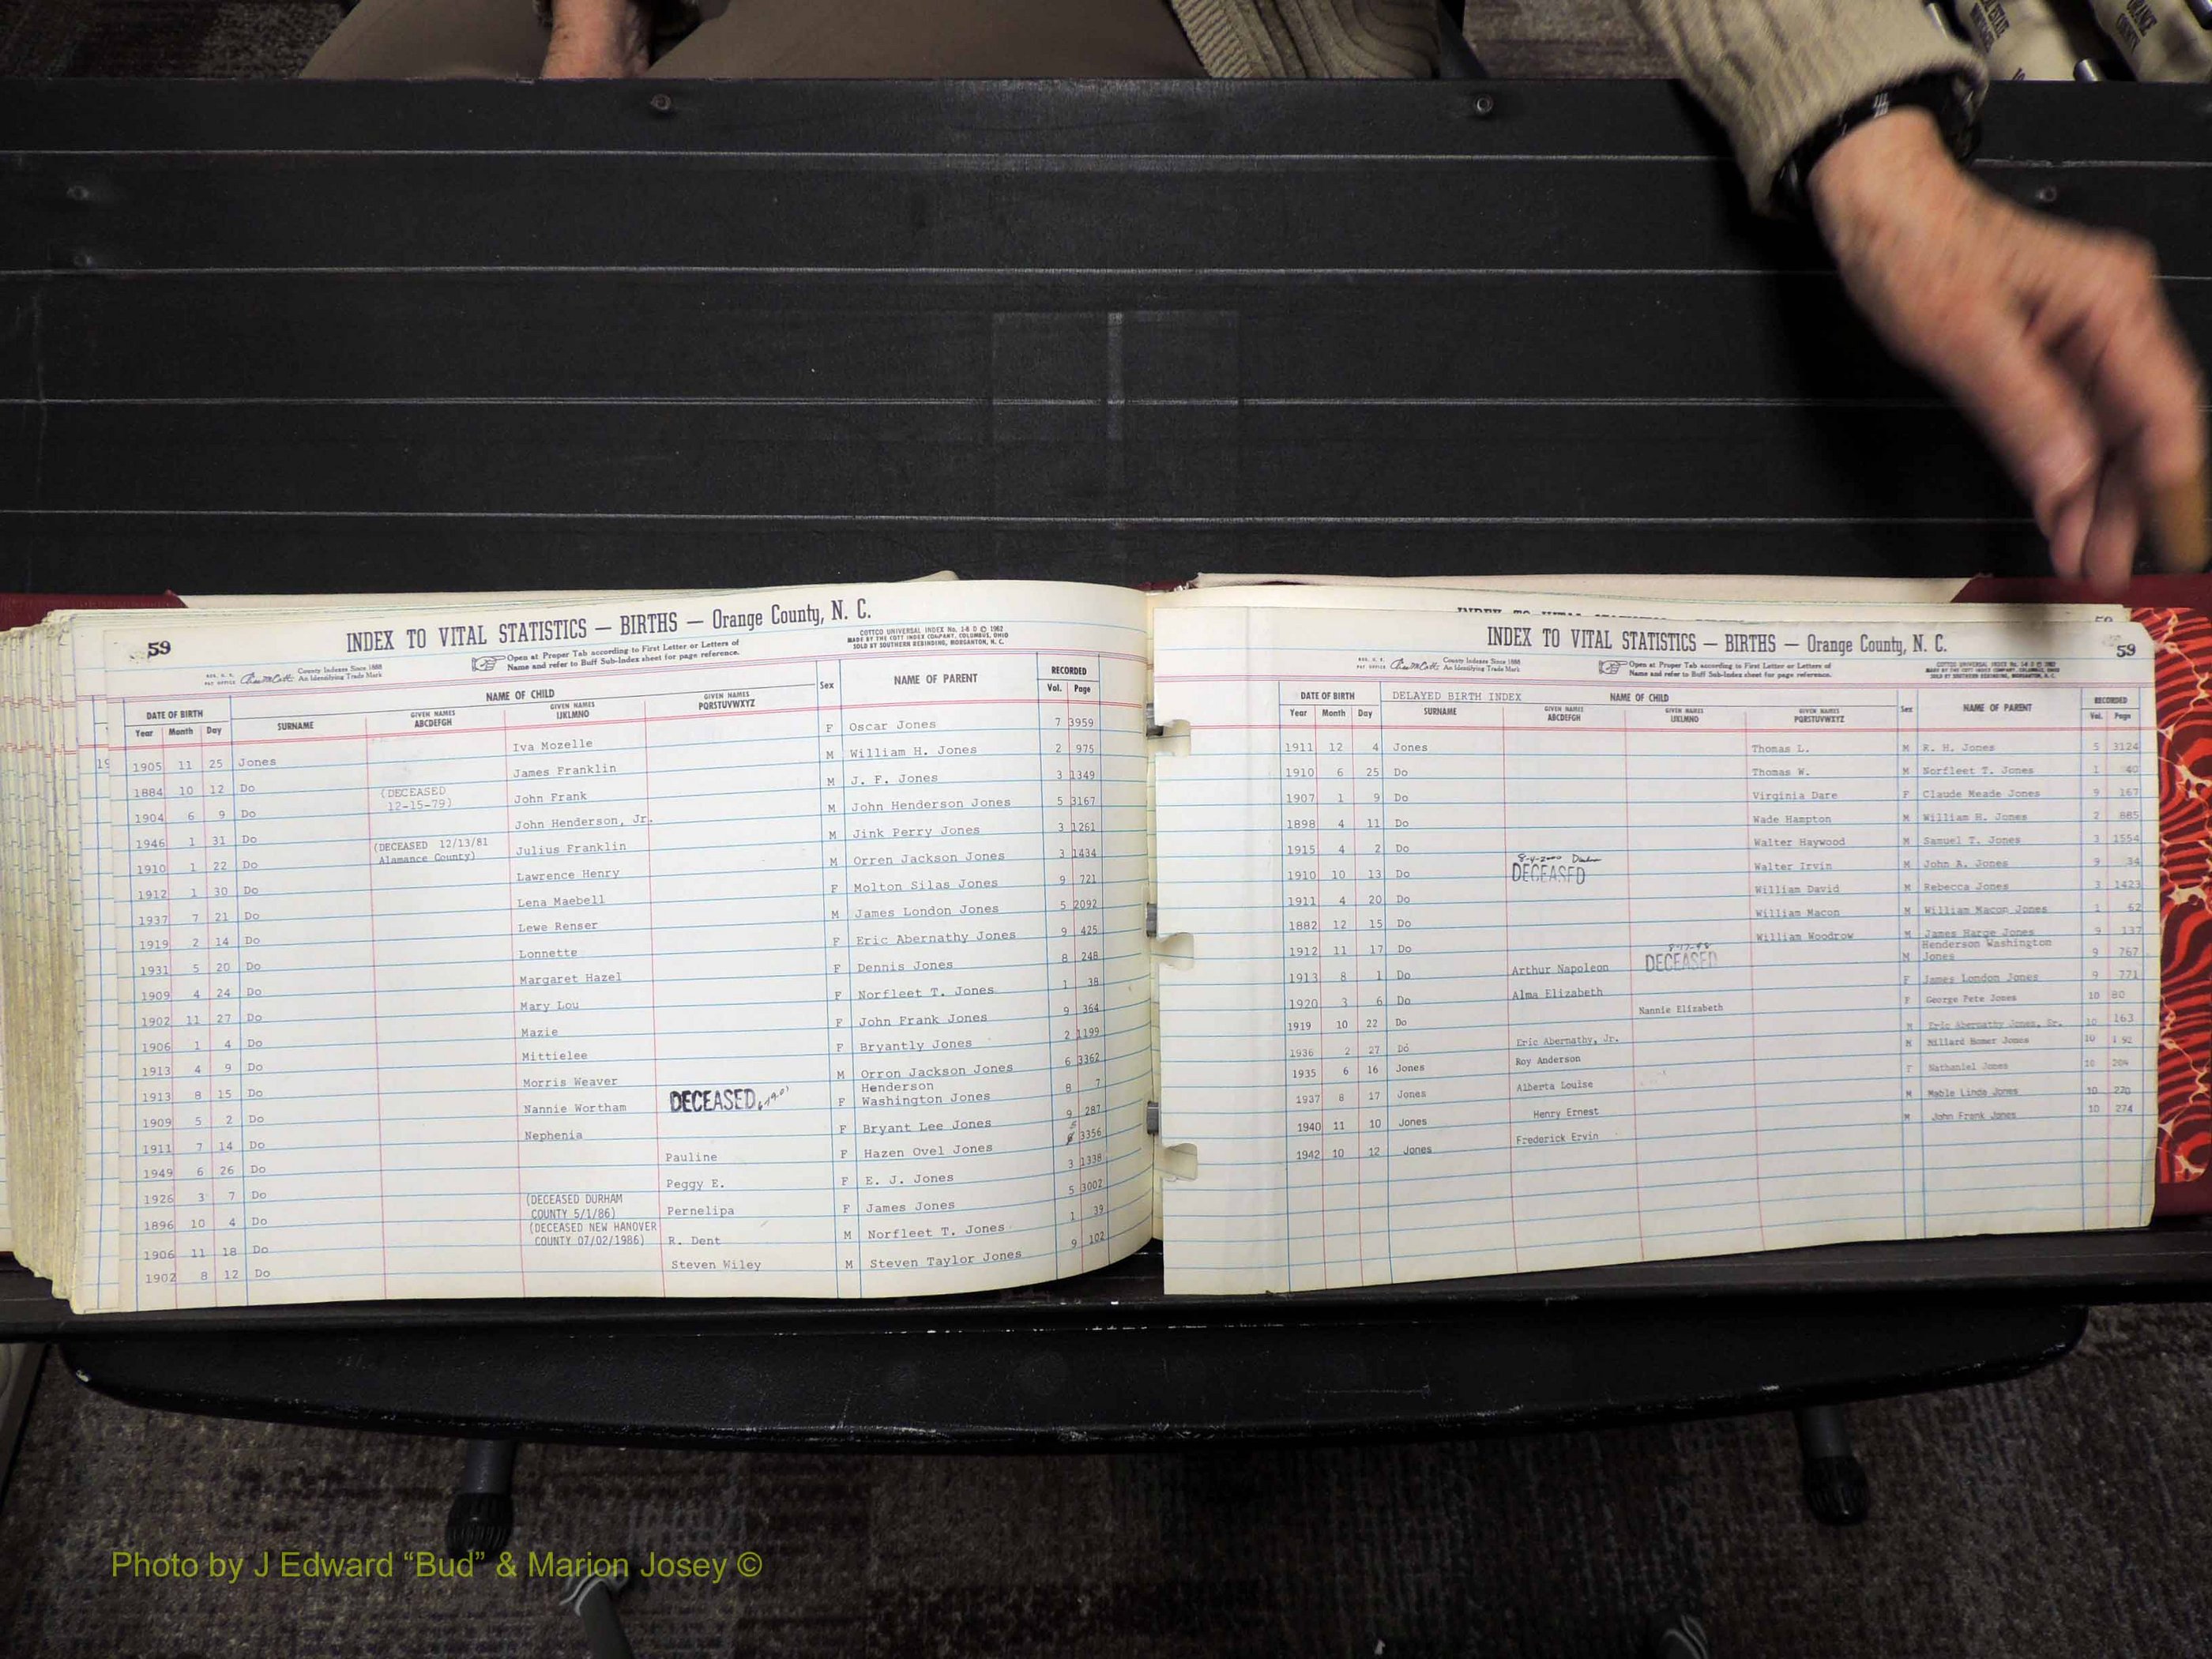 59
INDEX TO VITAL STATISTICS — BIRTHS — Orange County, N. C.
County Indexes Since 1888
An Identifying Trade Mark
Open at Proper Tab according to First Letter or Letters of
Name and refer to Buff Sub-Index sheet for page reference.
COTTCO UNIVERSAL INDEX No. 1-8 D © 1962
MADE BY THE COTT INDEX COMPANY, COLUMBUS, OHIO
SOLD BY SOUTHERN REBINDING, MORGANTON, N. C.
DATE OF BIRTH NAME OF CHILD Sex NAME OF PARENT RECORDED
Year Month Day SURNAME GIVEN NAMES ABCDEFGH GIVEN NAMES IJKLMNO GIVEN NAMES PQRSTUVWXYZ Vol. Page
1905 11 25 Jones Iva Mozelle F Oscar Jones 7 3959
1884 10 12 Do James Franklin M William H. Jones 2 975
1904 6 9 Do (DECEASED 12-15-79) John Frank M J. F. Jones 3 1349
1946 1 31 Do John Henderson, Jr. M John Henderson Jones 5 3167
1910 1 22 Do (DECEASED 12/13/81 Alamance County) Julius Franklin M Jink Perry Jones 3 1261
1912 1 30 Do Lawrence Henry M Orren Jackson Jones 3 1434
1937 7 21 Do Lena Maebell F Molton Silas Jones 9 721
1919 2 14 Do Lewe Renser M James London Jones 5 2092
1931 5 20 Do Lonnette F Eric Abernathy Jones 9 425
1909 4 24 Do Margaret Hazel F Dennis Jones 8 248
1902 11 27 Do Mary Lou F Norfleet T. Jones 1 38
1906 1 4 Do Mazie F John Frank Jones 9 364
1913 4 9 Do Mittielee F Bryantly Jones 2 1199
1913 8 15 Do Morris Weaver M Orron Jackson Jones 6 3362
1909 5 2 Do Nannie Wortham DECEASED F Henderson Washington Jones 8 7
1911 7 14 Do Nephenia F Bryant Lee Jones 9 287
1949 6 26 Do Pauline F Hazen Ovel Jones 3356
1926 3 7 Do Peggy E. F E. J. Jones 3 1338
1896 10 4 Do (DECEASED DURHAM COUNTY 5/1/86) Pernelipa F James Jones 5 3002
1906 11 18 Do (DECEASED NEW HANOVER COUNTY 07/02/1986) R. Dent M Norfleet T. Jones 1 39
1902 8 12 Do Steven Wiley M Steven Taylor Jones 9 102
INDEX TO VITAL STATISTICS — BIRTHS — Orange County, N. C.
59
County Indexes Since 1888
An Identifying Trade Mark
Open at Proper Tab according to First Letter or Letters of
Name and refer to Buff Sub-Index sheet for page reference.
DATE OF BIRTH DELAYED BIRTH INDEX NAME OF CHILD Sex NAME OF PARENT RECORDED
Year Month Day SURNAME GIVEN NAMES ABCDEFGH GIVEN NAMES IJKLMNO GIVEN NAMES PQRSTUVWXYZ Vol. Page
1911 12 4 Jones Thomas L. M R. H. Jones 5 3124
1910 6 25 Do Thomas W. M Norfleet T. Jones 1 40
1907 1 9 Do Virginia Dare F Claude Meade Jones 9 167
1898 4 11 Do Wade Hampton M William H. Jones 2 885
1915 4 2 Do Walter Haywood M Samuel T. Jones 3 1554
1910 10 13 Do 8-4-2000 DECEASED Walter Irvin M John A. Jones 9 34
1911 4 20 Do William David M Rebecca Jones 3 1423
1882 12 15 Do William Macon M William Macon Jones 1 62
1912 11 17 Do William Woodrow M James Harge Jones 9 137
1913 8 1 Do Arthur Napoleon 8-17-98 DECEASED M Henderson Washington Jones 9 767
1920 3 6 Do Alma Elizabeth F James London Jones 9 771
1919 10 22 Do Nannie Elizabeth F George Pete Jones 10 80
1936 2 27 Do Eric Abernathy, Jr. M Eric Abernathy Jones, Sr. 10 163
1935 6 16 Jones Roy Anderson M Millard Homer Jones 10 192
1937 8 17 Jones Alberta Louise F Nathaniel Jones 10 204
1940 11 10 Jones Henry Ernest M Mable Linda Jones 10 220
1942 10 12 Jones Frederick Ervin M John Frank Jones 10 274
Photo by J Edward “Bud” & Marion Josey ©